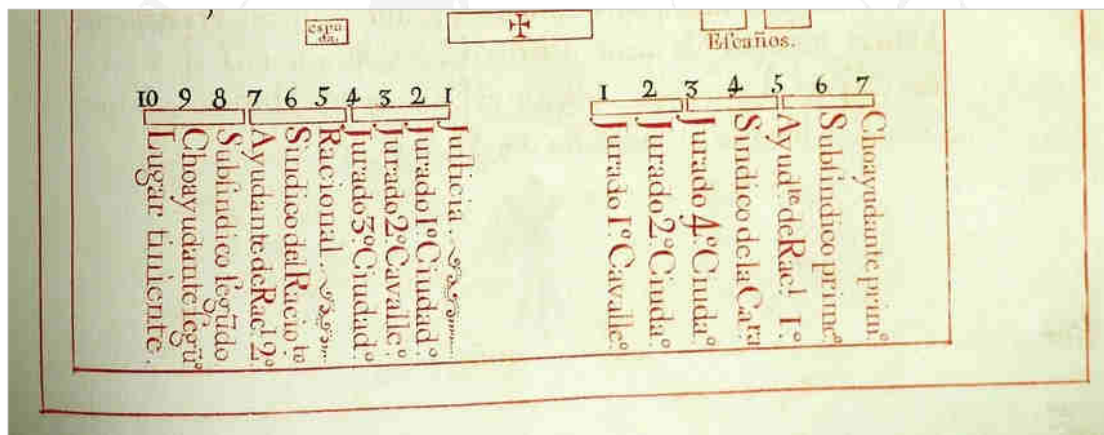 espa
da.
✠
Escaños.
10 9 8 7 6 5 4 3 2 1
Justicia.
Jurado 1º. Ciudad.º
Jurado 2º. Cavalle.º
Jurado 3º. Ciudad.º
Racional.
Sindico del Racio.to
Ayudante de Rac.l 2º.
Subsindico segūdo
Choayudante segū.º
Lugar tiniente.
1 2 3 4 5 6 7
Jurado 1º. Cavalle.º
Jurado 2º. Ciuda.º
Jurado 4º. Ciuda.º
Sindico de la Cara
Ayud.te de Rac.l 1º.
Subsindico prime.º
Choayudante prim.º